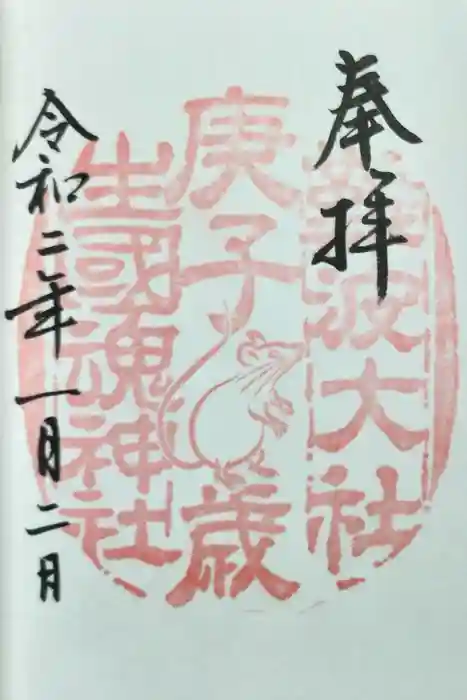 奉拝
難波大社
庚子歳
生國魂神社
令和二年一月二日